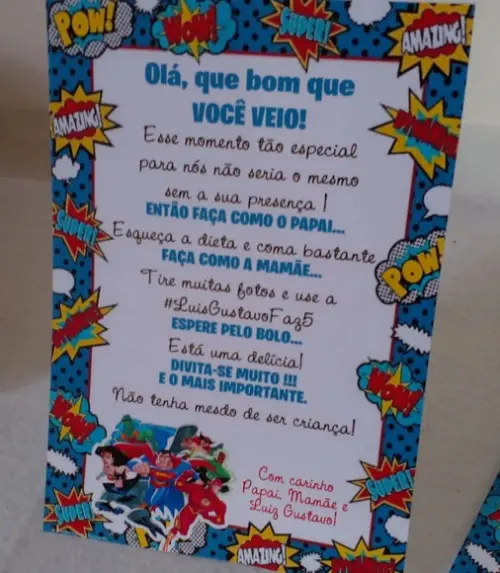 POW!
WOW!
SUPER!
AMAZING!
Olá, que bom que
VOCÊ VEIO!
AMAZING!
Esse momento tão especial
para nós não seria o mesmo
sem a sua presença !
ENTÃO FAÇA COMO O PAPAI...
SUPER!
Esqueça a dieta e coma bastante
FAÇA COMO A MAMÃE...
POW!
Tire muitas fotos e use a
#LuisGustavoFaz5
ESPERE PELO BOLO...
Está uma delícia!
DIVITA-SE MUITO !!!
E O MAIS IMPORTANTE.
WOW!
WOW!
Não tenha mesdo de ser criança!
Com carinho
Papai, Mamãe e
Luiz Gustavo!
SUPER!
SUPER!
AMAZING!